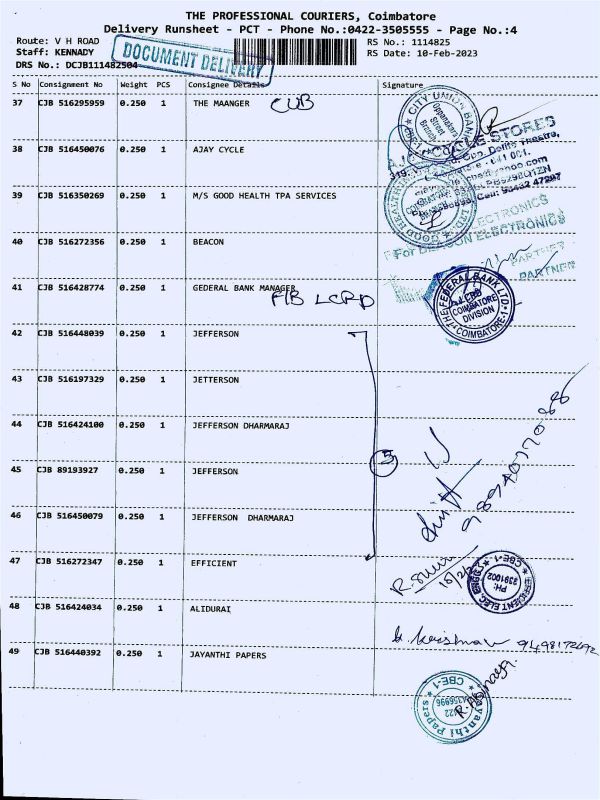 THE PROFESSIONAL COURIERS, Coimbatore
Delivery Runsheet - PCT - Phone No.:0422-3505555 - Page No.:4
Route: V H ROAD RS No.: 1114825
Staff: KENNADY RS Date: 10-Feb-2023
DRS No.: DCJB111482504
DOCUMENT DELIVERY
S No Consignment No Weight PCS Consignee Details Signature
37 CJB 516295959 0.250 1 THE MAANGER CUB
CITY UNION BANK
Oppanakara Street Branch
38 CJB 516450076 0.250 1 AJAY CYCLE
CYCLE STORES
39 CJB 516350269 0.250 1 M/S GOOD HEALTH TPA SERVICES
GOOD HEALTH
LTD.
40 CJB 516272356 0.250 1 BEACON
ELECTRONICS
For BEACON ELECTRONICS
PARTNER
PARTNER
41 CJB 516428774 0.250 1 GEDERAL BANK MANAGER
FB LCRD
THE FEDERAL BANK LTD
COIMBATORE
DIVISION
COIMBATORE-1
42 CJB 516448039 0.250 1 JEFFERSON
43 CJB 516197329 0.250 1 JETTERSON
44 CJB 516424100 0.250 1 JEFFERSON DHARMARAJ
45 CJB 89193927 0.250 1 JEFFERSON
5
46 CJB 516450079 0.250 1 JEFFERSON DHARMARAJ
47 CJB 516272347 0.250 1 EFFICIENT
EFFICIENT ELEC ENGG
PH:
2391002
CBE-1
48 CJB 516424034 0.250 1 ALIDURAI
49 CJB 516440392 0.250 1 JAYANTHI PAPERS
Jayanthi Papers
CBE-1